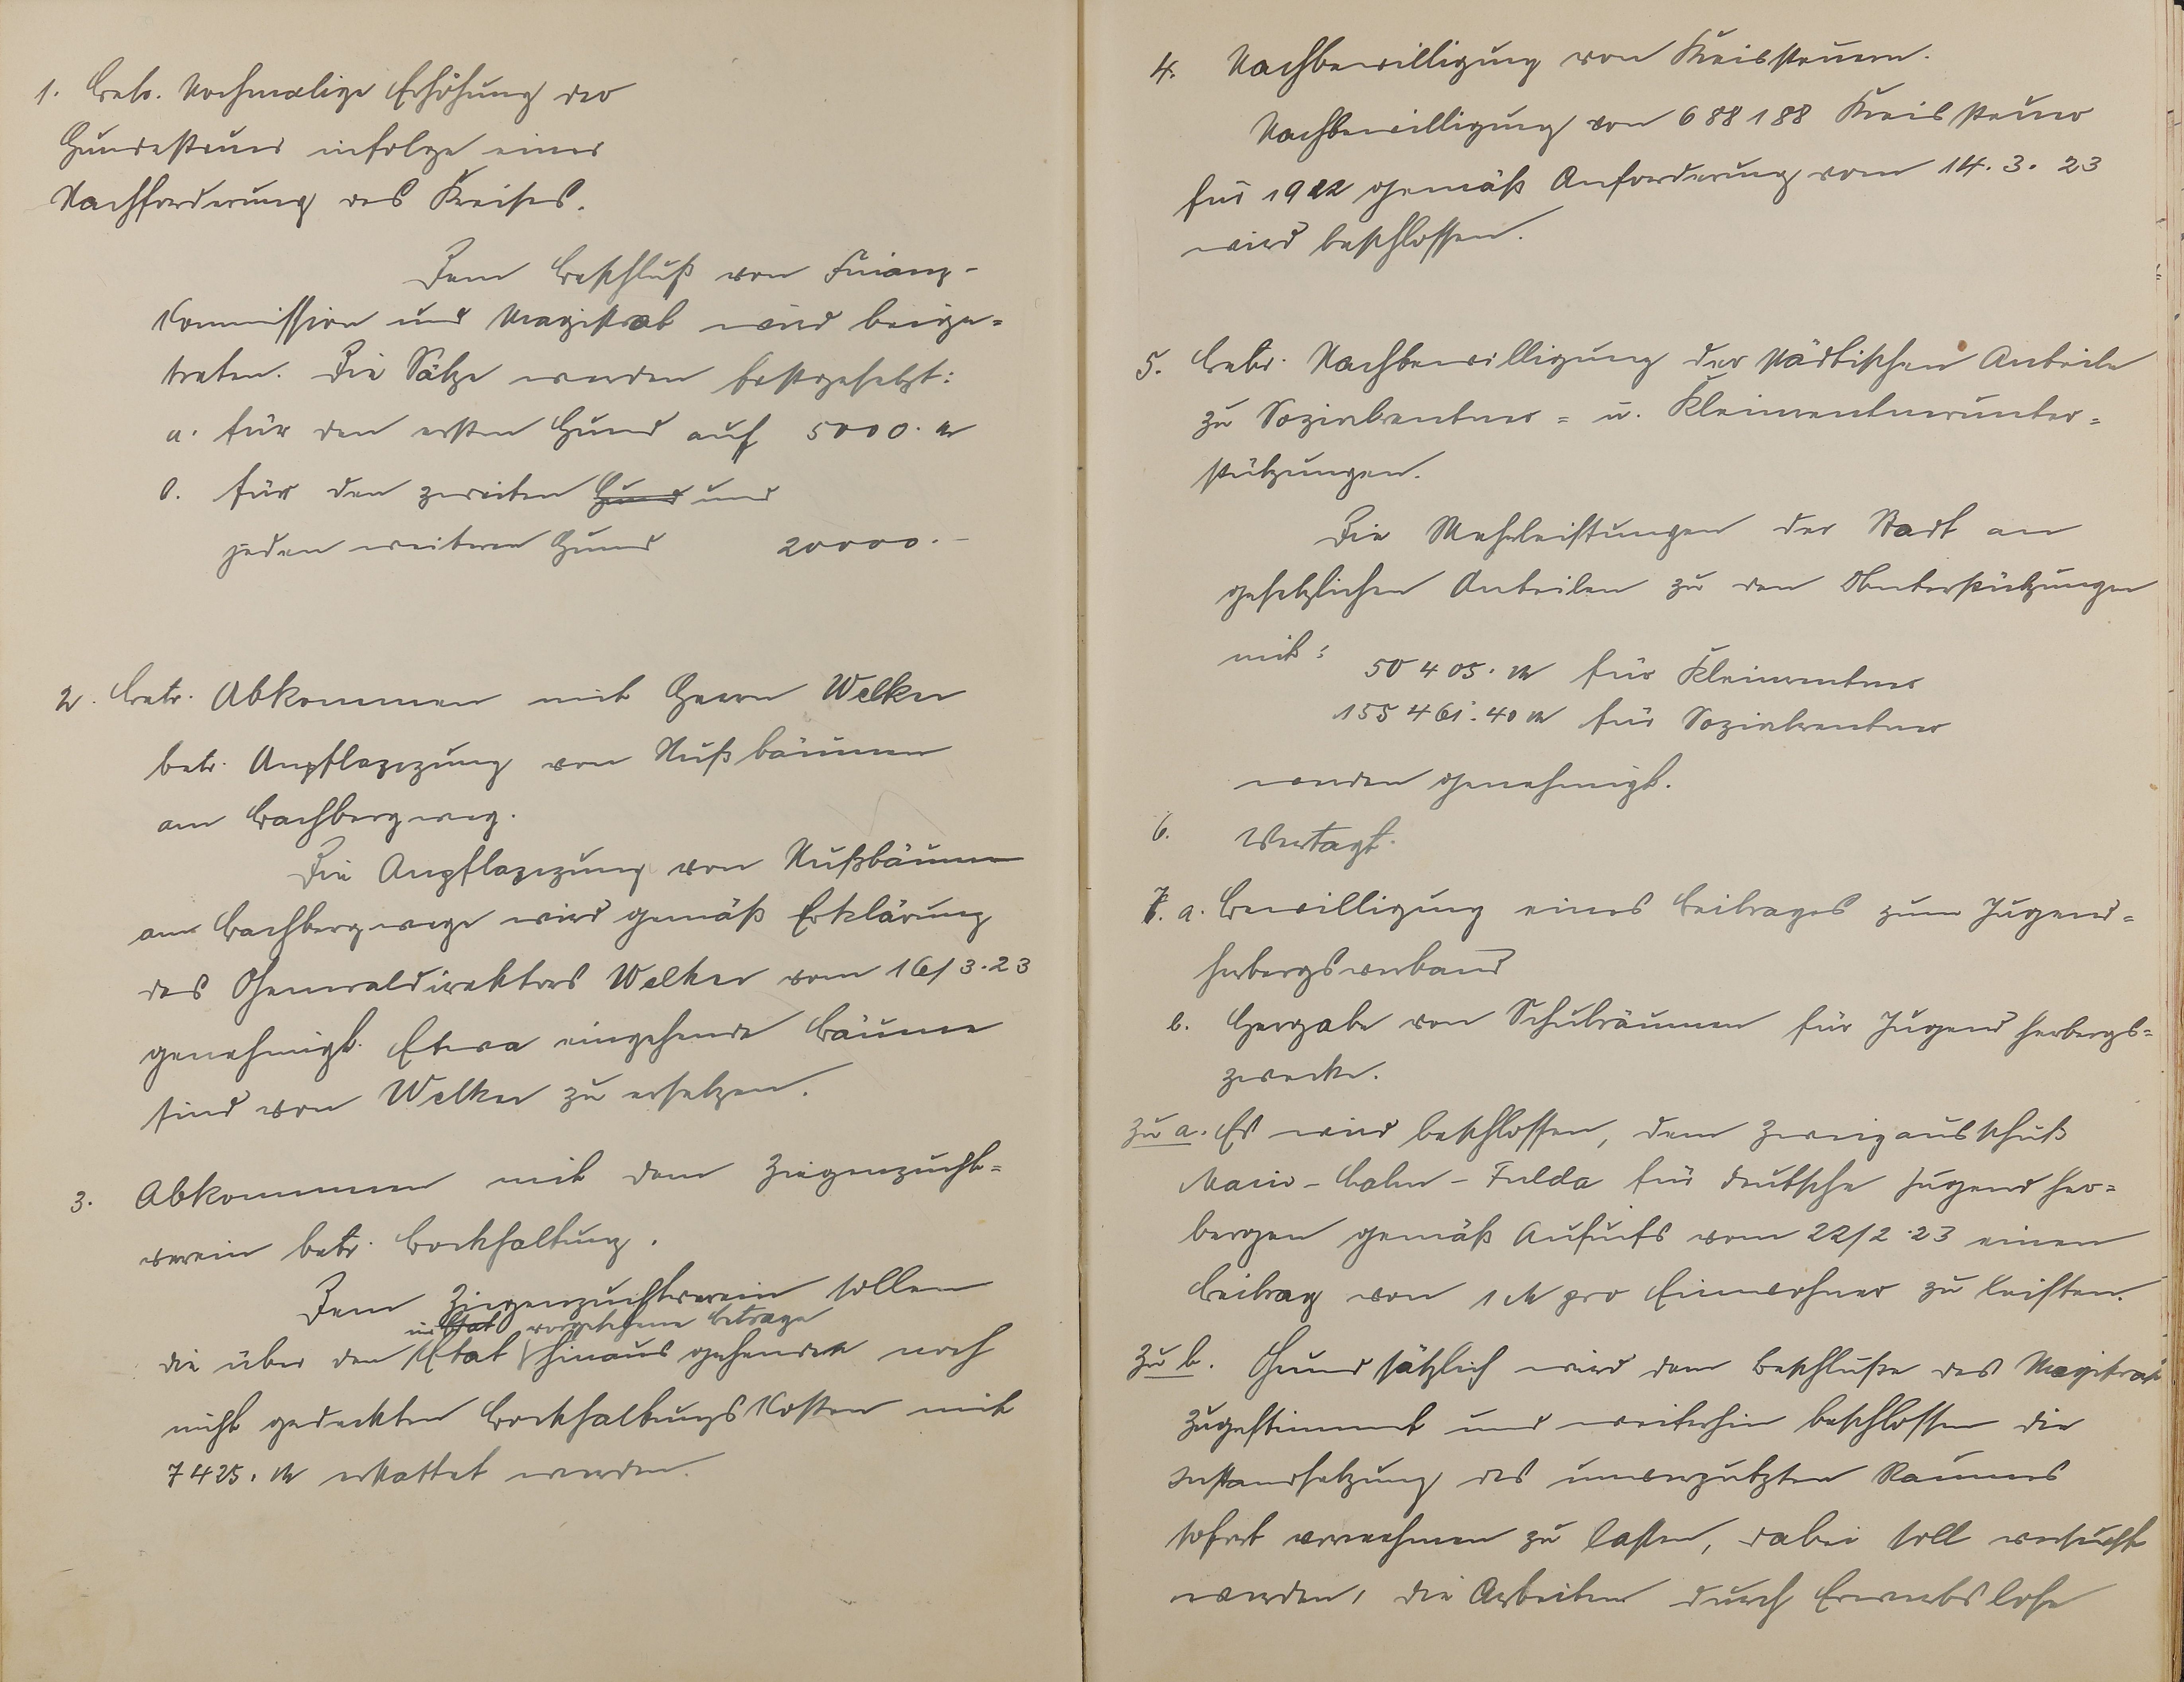 1. Betr. Nochmalige Erhöhung der
Hundesteuer infolge einer
Nachforderung des Kreises.
Dem Beschluß von Finanz-
kommission und Magistrat wird beige=
treten. Die Sätze werden festgesetzt:
a. für den ersten Hund auf 5000. M
b. für den zweiten Hund und
jeden weiteren Hund 20000.-
2. Betr. Abkommen mit Herrn Welker
betr. Anpflanzung von Nußbäumen
am Bachbergweg.
Die Anpflanzung von Nußbäumen
am Bachbergwege wird gemäß Erklärung
des Generaldirektors Welker vom 16/3.23
genehmigt. Etwa eingehende Bäume
sind von Welker zu ersetzen.
3. Abkommen mit dem Ziegenzucht=
verein betr. Bockhaltung.
Dem Ziegenzuchtverein sollen
im Etat vorgesehene Betrage
die über den Etat hinaus gehenden noch
nicht gedeckten Bockhaltungskosten mit
7425. M erstattet werden.
4. Nachbewilligung von Kreissteuern.
Nachbewilligung von 688188 Kreissteuer
für 1922 gemäß Anforderung vom 14.3.23
wird beschlossen.
5. Betr. Nachbewilligung der städtischen Anteile
zu Sozialrentner= u. Kleinrentnerunter=
stützungen.
Die Mehrleistungen der Stadt an
gesetzlichen Anteilen zu den Unterstützungen
mit:
50405. M für Kleinrentner
155461.40 M für Sozialrentner
werden genehmigt.
6. Vertagt.
7. a. Bewilligung eines Beitrages zum Jugend=
herbergsverband
b. Hergabe von Schulräumen für Jugendherbergs=
zwecke.
Zu a. Es wird beschlossen, dem Zweigausschuß
Main-Lahn-Fulda für deutsche Jugendher=
bergen gemäß Aufrufs vom 22/2.23 einen
Beitrag von 1 M pro Einwohner zu leisten.
Zu b. Grundsätzlich wird dem Beschluße des Magistrats
zugestimmt und weiterhin beschlossen die
Instandsetzung des unverputzten Raumes
sofort vornehmen zu lassen, dabei soll versucht
werden, die Arbeiten durch Erwerbslose